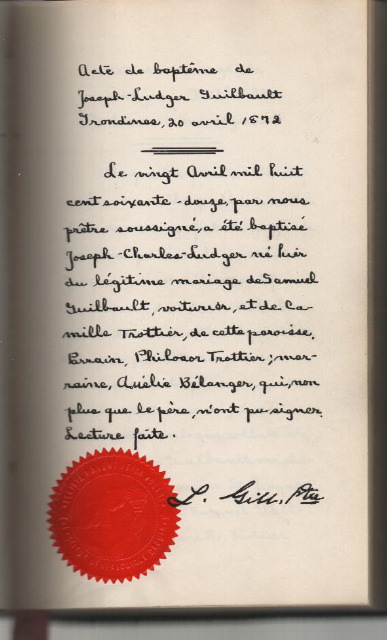 Acte de baptême de
Joseph-Ludger Guilbault
Grondines, 20 avril 1872
Le vingt Avril mil huit
cent soixante-douze, par nous
prêtre soussigné, a été baptisé
Joseph-Charles-Ludger né hier
du légitime mariage de Samuel
Guilbault, voiturier, et de Ca-
mille Trottier, de cette paroisse.
Parrain, Philosor Trottier; mar-
raine, Aurélie Bélanger, qui, non
plus que le père, n'ont pu signer.
Lecture faite.
L. Gill, Ptre